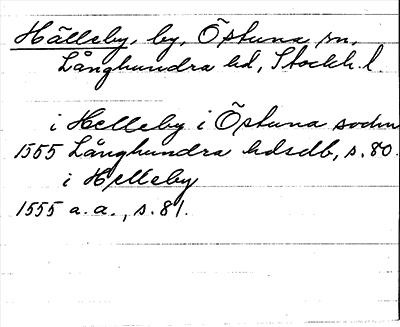 Hälleby, by, Östuna sn,
Långhundra hd, Stockh. l.
i Helleby i Östuna sochn
1555 Långhundra hdsdb, s. 80.
i Helleby
1555 a. a., s. 81.